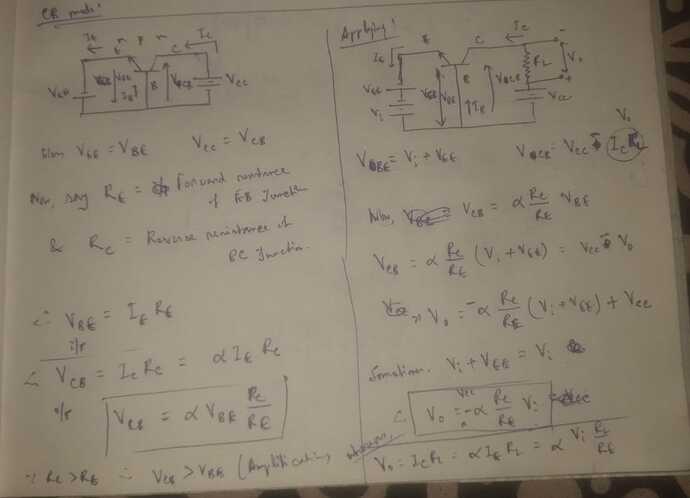 CB model
I_E n p n C I_C
V_EE V_BE I_B B V_CB V_CC
V_EE = V_BE V_CC = V_CB
Now, say R_E = Forward resistance
of EB Junction
& R_C = Reverse resistance of
BC Junction.
∴ V_BE = I_E R_E
i/p
∴ V_CB = I_C R_C = α I_E R_C
o/p
V_CB = α V_BE R_C/R_E
∵ R_C > R_E ∴ V_CB > V_BE (Amplification)
Applying
I_E E C I_C -
V_EE V_BE B V_CB R_L V_o
+
V_i I_B V_CC
V_o
V_BE = V_i + V_EE V_CB = V_CC - I_C R_L
Now, V_CB = α R_C/R_E V_BE
V_CB = α R_C/R_E (V_i + V_EE) = V_CC - V_o
⇒ V_o = -α R_C/R_E (V_i + V_EE) + V_CC
Sometimes. V_i + V_EE = V_i
∴ V_o = V_CC - α R_C/R_E V_i
V_o = I_C R_L = α I_E R_L = α V_i R_L/R_E